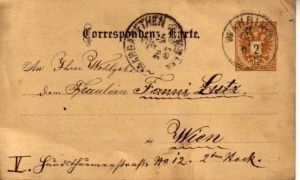 Correspondenz-Karte.
2
An Ihre Wohlgeboren
dem Fräulein Fanni Lutz
in
Wien
V. Hundsthurmerstraße No 12. 2ten Stock.